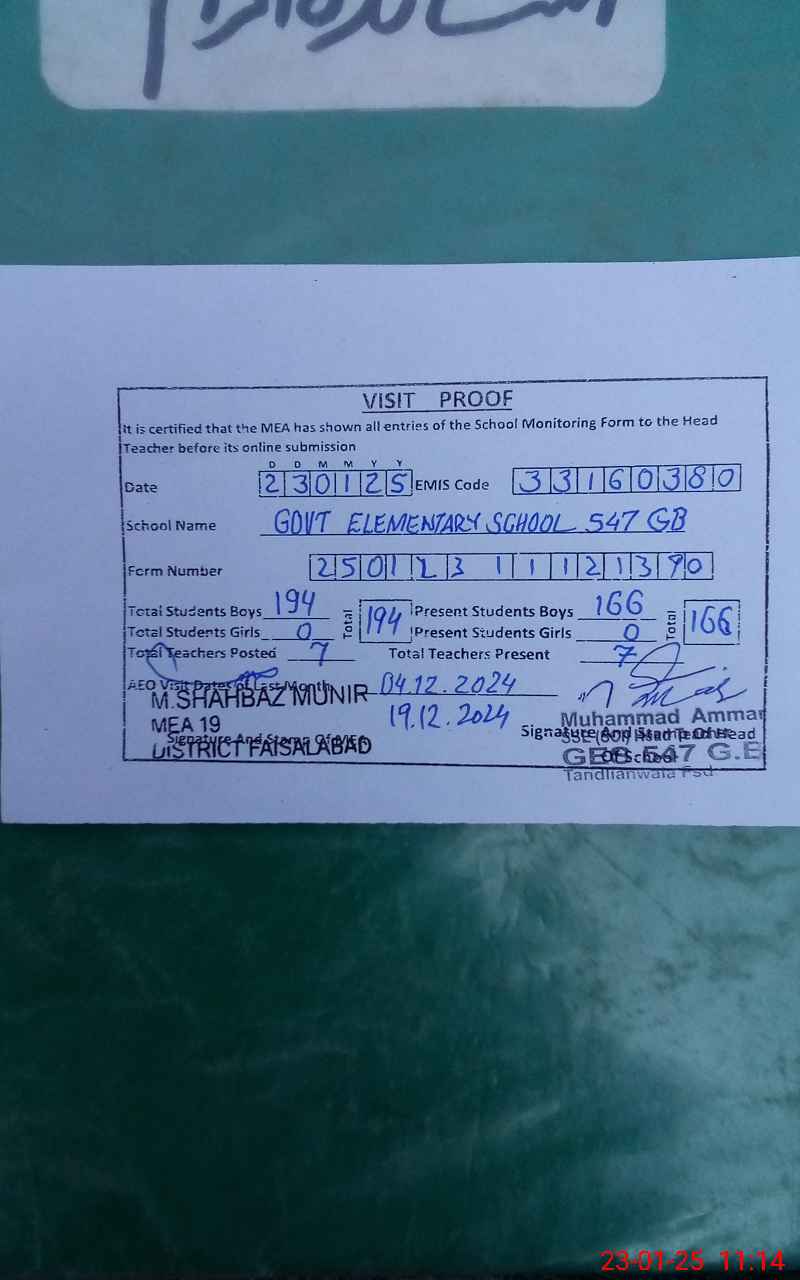 VISIT PROOF
It is certified that the MEA has shown all entries of the School Monitoring Form to the Head
Teacher before its online submission
D D M M Y Y
Date 230125 EMIS Code 33160380
School Name GOVT ELEMENTARY SCHOOL 547 GB
Form Number 25012311121390
Total Students Boys 194 Total 194 Present Students Boys 166 Total 166
Total Students Girls 0 Present Students Girls 0
Total Teachers Posted 7 Total Teachers Present 7
AEO Visit Dates of Last Month 04.12.2024
19.12.2024
M.SHAHBAZ MUNIR
MEA 19
DISTRICT FAISALABAD
Signature And Stamp Of MEA
Muhammad Ammar
Signature And Stamp Of Head
Of School
547 G.B
Tandlianwala Fsd
23-01-25 11:14